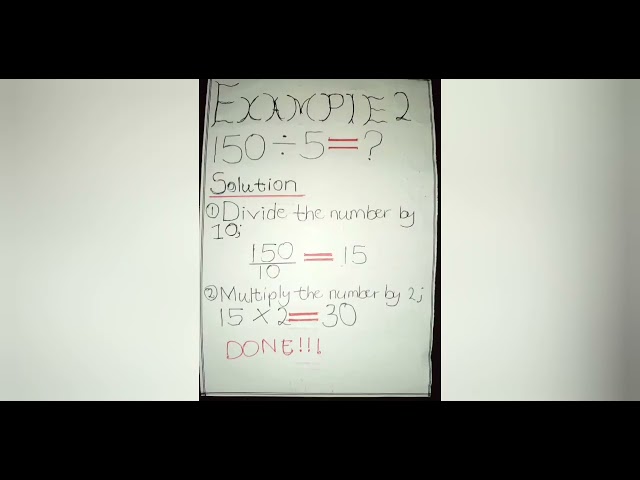 EXAMPLE 2
150 ÷ 5 = ?
Solution
① Divide the number by
10;
150
10
= 15
② Multiply the number by 2;
15 × 2 = 30
DONE!!!